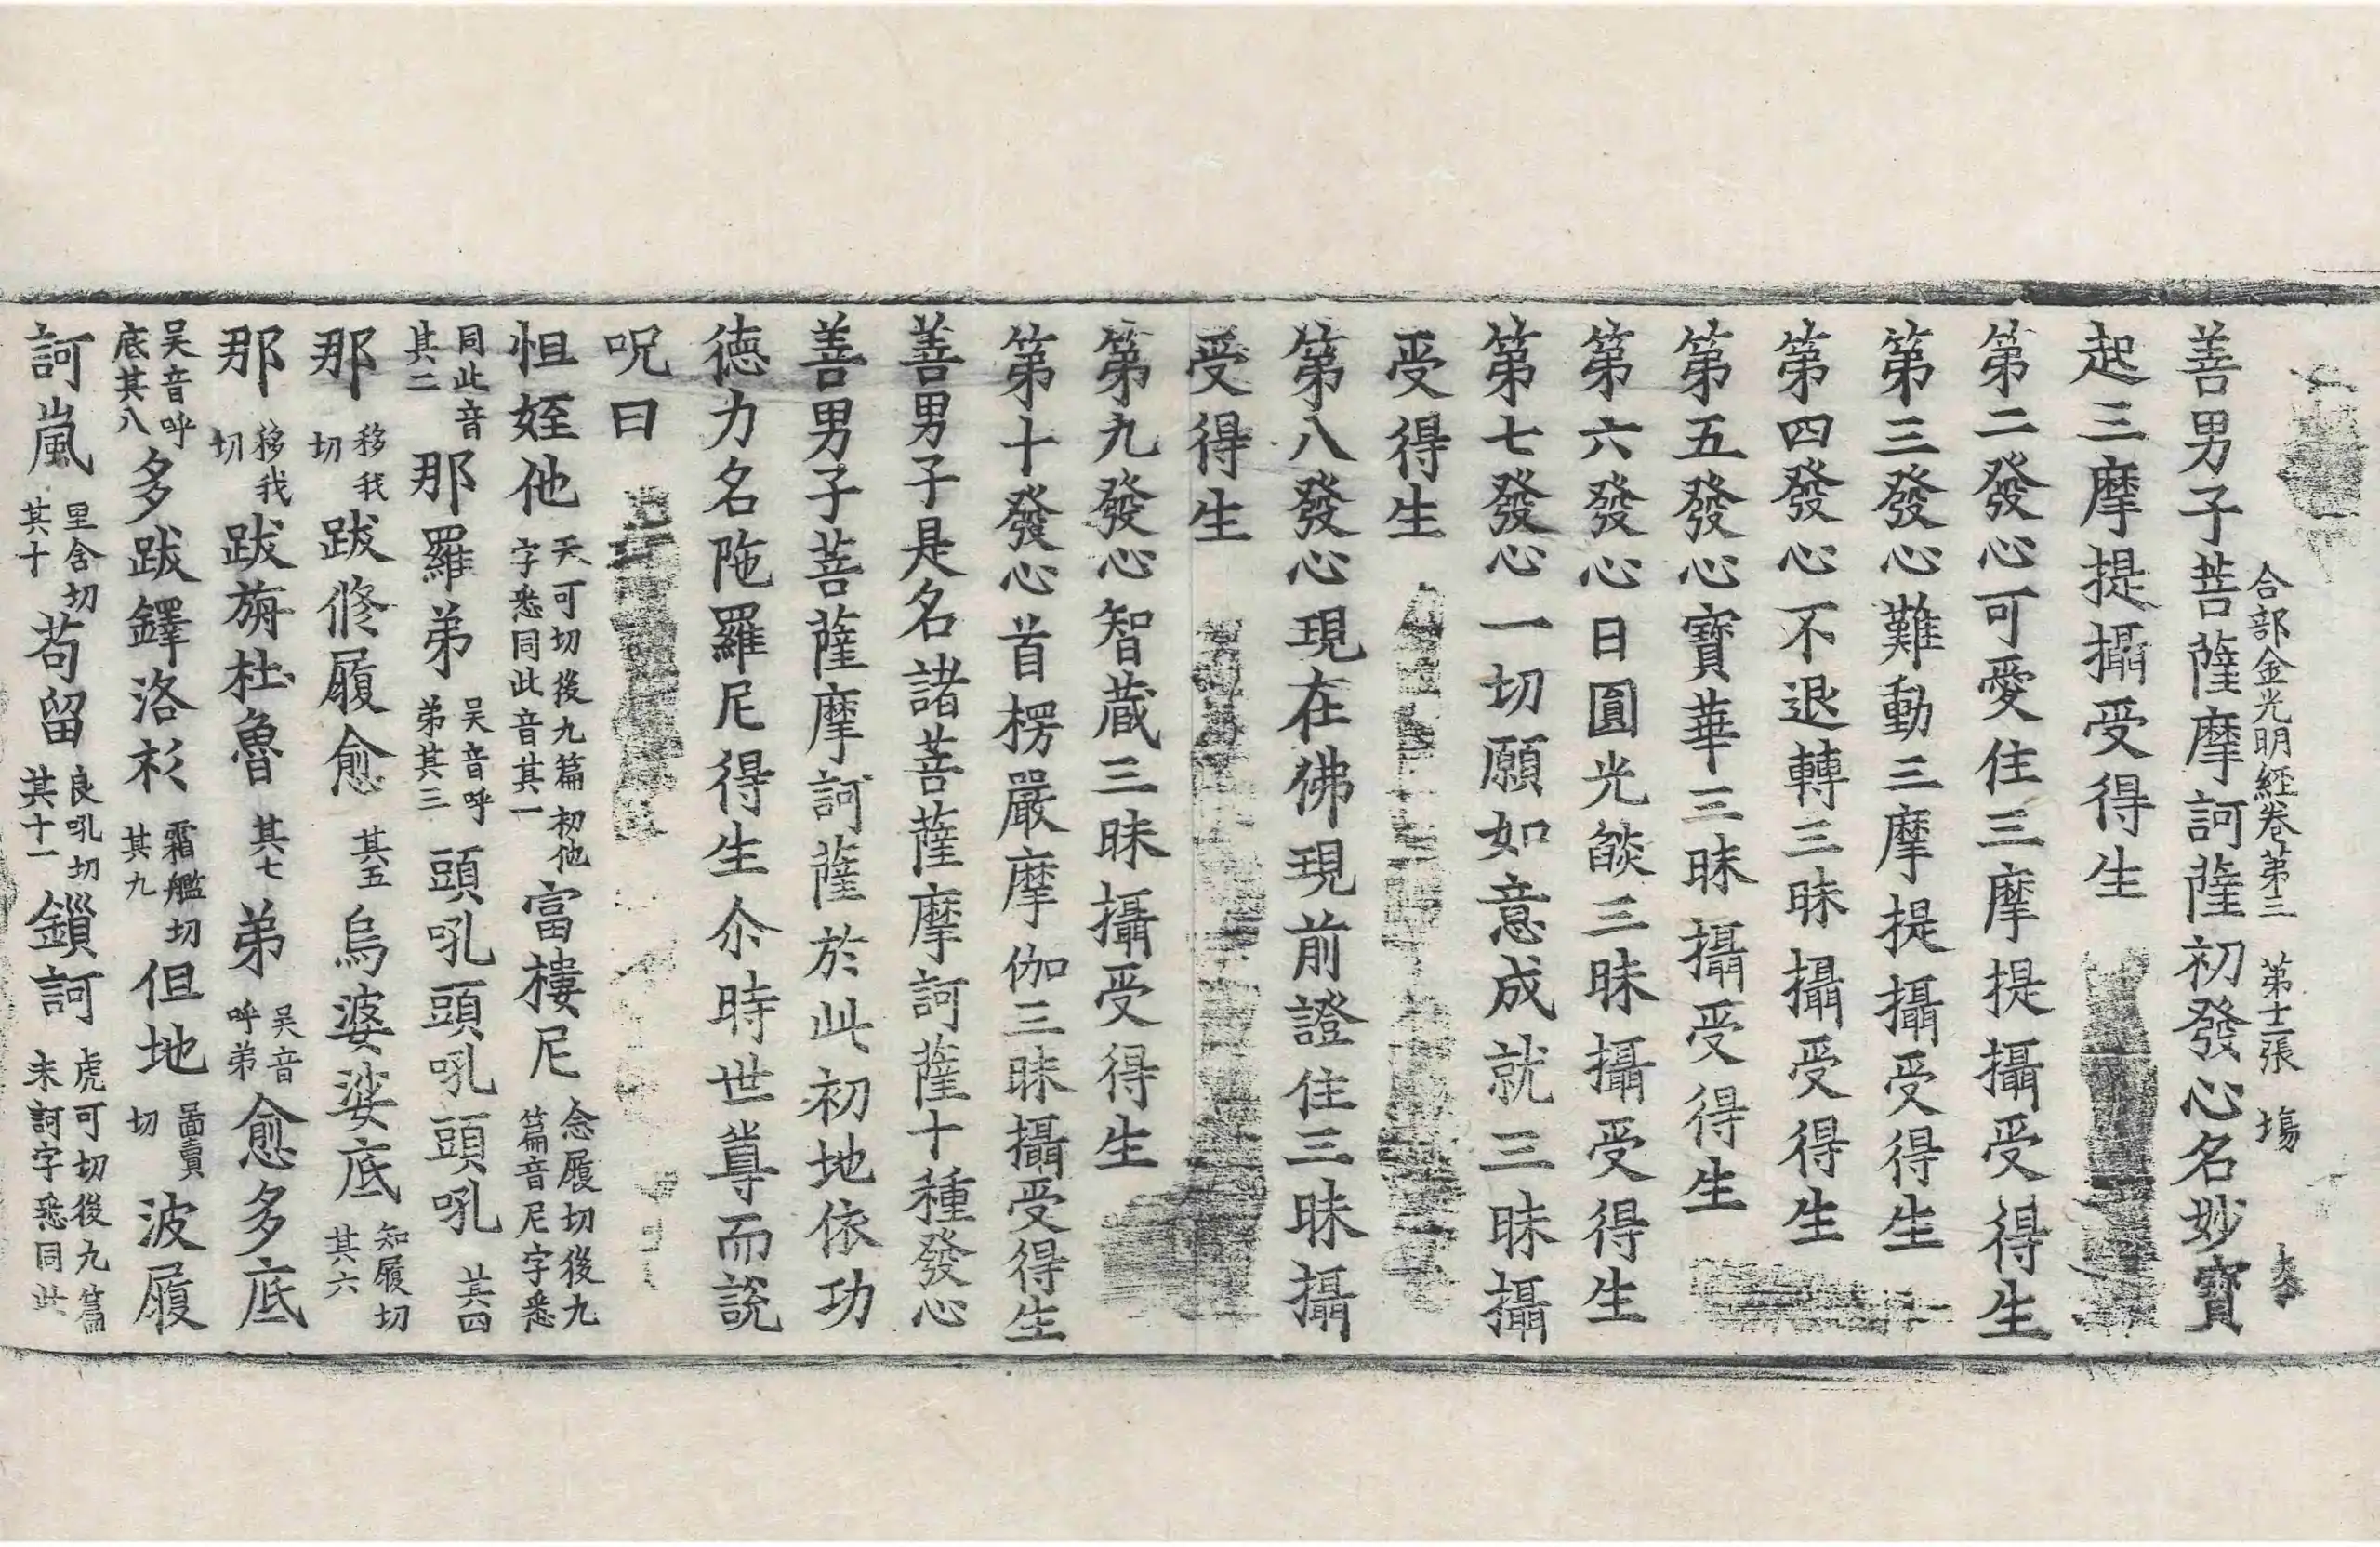 合部金光明經卷第三　第十二張　塲
善男子菩薩摩訶薩初發心名妙寶
起三摩提攝受得生
第二發心可愛住三摩提攝受得生
第三發心難動三摩提攝受得生
第四發心不退轉三昧攝受得生
第五發心寶華三昧攝受得生
第六發心日圓光燄三昧攝受得生
第七發心一切願如意成就三昧攝
受得生
第八發心現在佛現前證住三昧攝
受得生
第九發心智蔵三昧攝受得生
第十發心首楞嚴摩伽三昧攝受得生
善男子是名諸菩薩摩訶薩十種發心
善男子菩薩摩訶薩於此初地依功
德力名陁羅尼得生尒時世尊而說
呪曰
怛姪他天可切後九篇初他字悉同此音其一富樓尼念履切後九篇音尼字悉
同此音其二那羅弟吳音呼弟其三頭吼頭吼頭吼其四
那移我切跋修履愈其五烏婆娑底知履切其六
那移我切跋旃杜魯其七弟吳音呼弟愈多底
吳音呼底其八多跋鐸洛衫霜艦切其九但地啚賣切波履
訶嵐里含切其十苟留良吼切其十一鎻訶虎可切後九篇末訶字悉同此